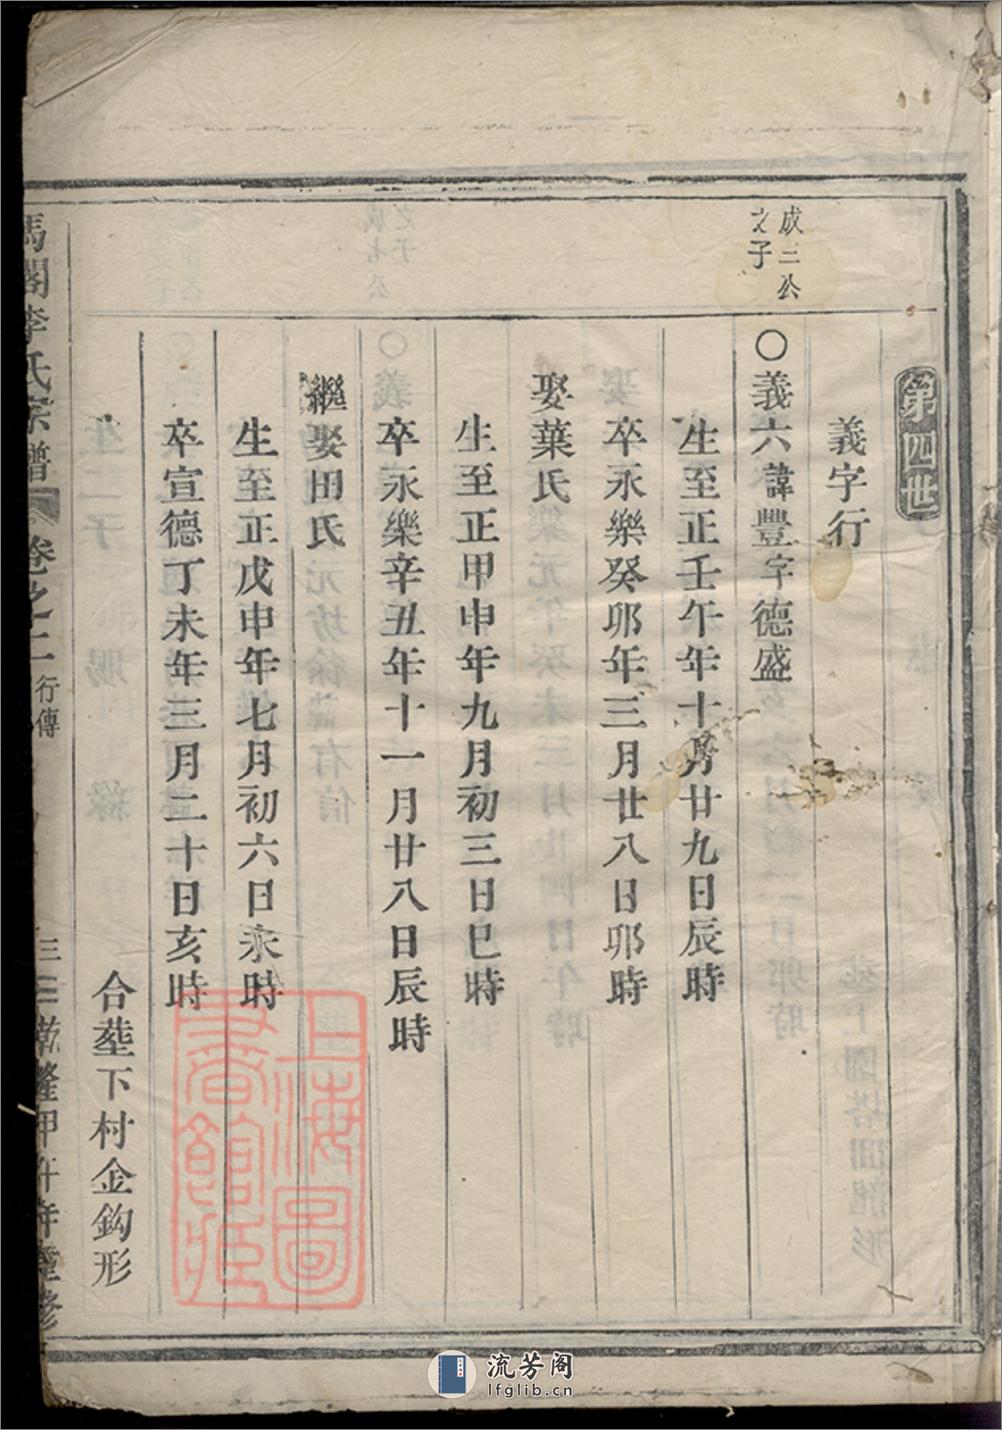 第四世
義字行
成三公
之子
〇義六諱豐字德盛
生至正壬午年十月廿九日辰時
卒永樂癸卯年三月廿八日卯時
娶葉氏
生至正甲申年九月初三日巳時
卒永樂辛丑年十一月廿八日辰時
繼娶田氏
生至正戊申年七月初六日未時
卒宣德丁未年三月二十日亥時
合塟下村金鈎形
馬閣李氏宗譜 卷之二 行傳 三 乾隆甲午年重修
上海圖書館藏
流芳阁
lfglib.cn